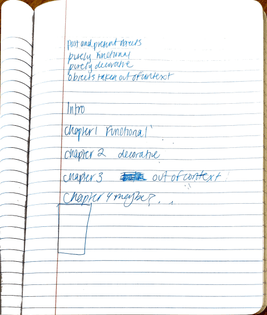 Past and present objects
purely functional
purely decorative
objects taken out of context
Intro
Chapter 1 Functional
Chapter 2 decorative
Chapter 3 out of context
Chapter 4 maybe? . .